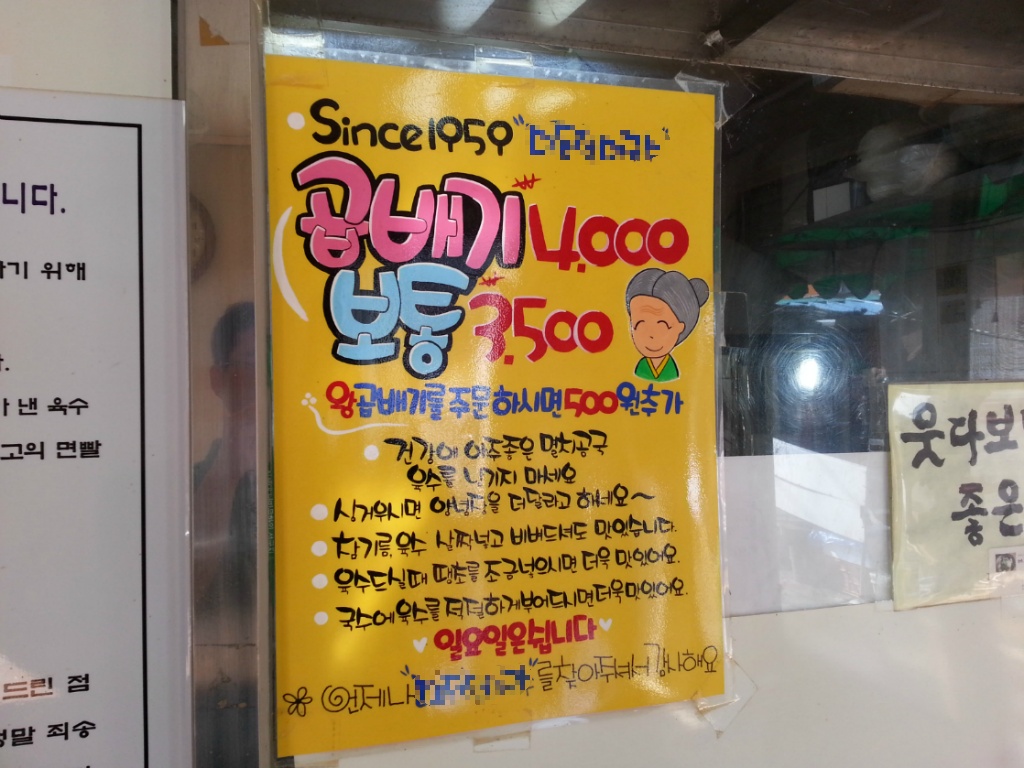 Since1959
곱배기 ₩4.000
보통 ₩3.500
왕곱배기를 주문하시면 500원추가
건강에 아주좋은 멸치공국
육수를 남기지 마세요
싱거우시면 양념장을 더달라고 하세요~
참기름육수 살짝넣고 비벼드셔도 맛있습니다.
육수드실때 땡초를 조금넣으시면 더욱 맛있어요.
국수에육수를 적덜하게부어드시면더욱맛있어요.
일요일은쉽니다
언제나
를찾아주셔서 감사해요
니다.
하기 위해
낸 육수
고의 면빨
드린 점
정말 죄송
웃다보
좋은